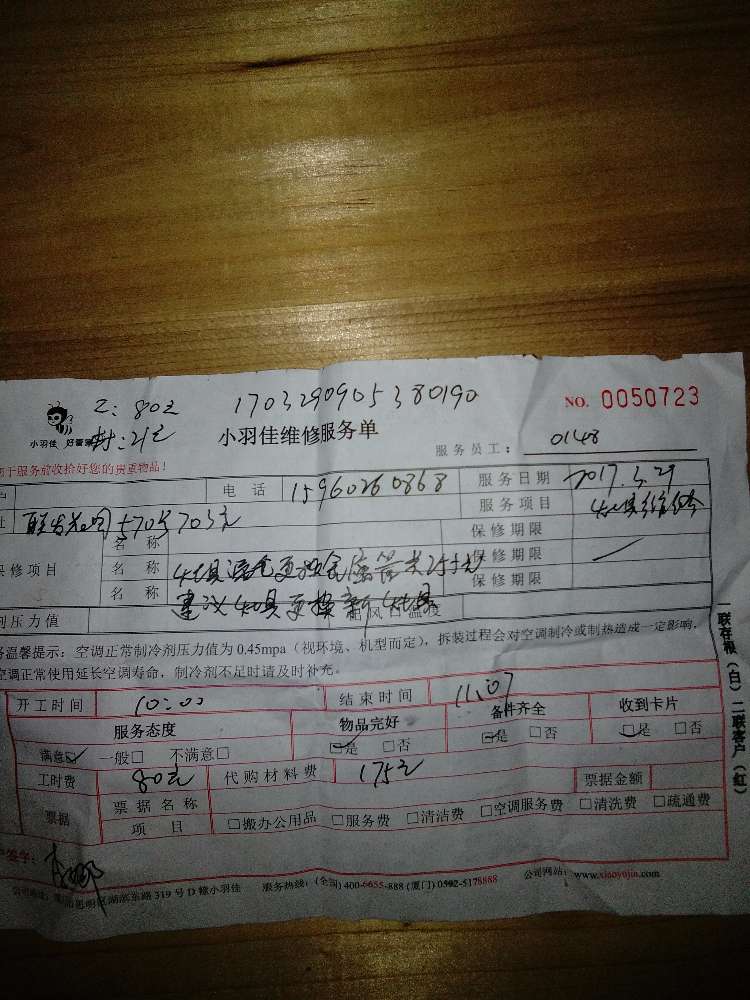 工: 80元 1703290905380190 NO. 0050723
小羽佳 好管家 材: 21元 小羽佳维修服务单 服务员工: 0148
于服务前收拾好您的贵重物品!
电话 15960260868 服务日期 2017.3.29
址 570号703元 服务项目
名称 保修期限
保修项目 名称 保修期限
名称 建议 更换新 保修期限
压力值 出风口温度
温馨提示: 空调正常制冷剂压力值为 0.45mpa (视环境、机型而定), 拆装过程会对空调制冷或制热造成一定影响,
空调正常使用延长空调寿命, 制冷剂不足时请及时补充。
开工时间 10:00 结束时间 11:07
服务态度 物品完好 备件齐全 收到卡片
满意☑ 一般□ 不满意□ ☑是 □否 ☑是 □否 ☑是 □否
工时费 80元 代购材料费 175元 票据金额
票据 票据名称
项目 □搬办公用品 □服务费 □清洁费 □空调服务费 □清洗费 □疏通费
户签字:
公司地址: 厦门思明区湖滨东路 319 号 D 幢小羽佳 服务热线: (全国) 400-6655-888 (厦门) 0592-5178888 公司网站: www.xiaoyujia.com
联存根(白) 二联客户(红)